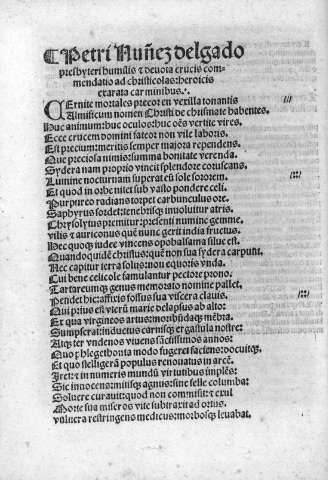 ❡Petri Nuñez delgado
presbyteri humilis ⁊ deuota crucis com-
mendatio ad christicolas: heroicis
exarata carminibus.
CErnite mortales precor en vexilla tonantis
Almificum nomen Christi de chrismate habentes.
Huc animum: huc oculos: huc oẽs vertite vires.
Ecce crucem domini fateor non vile laboris.
Est precium: meritis semper majora rependens.
Que preciosa nimis: summa bonitate verenda.
Sydera nam proprio vincit splendore coruscans.
Lumine nocturnam superat eñ sole sororem.
Et quod in orbe nitet sub vasto pondere celi.
Purpureo radians torpet carbunculus ore.
Saphyrus sordet: tenebrisq; inuoluitur atris.
Chrysolytus premitur: presenti numine gemme.
vilis ⁊ auricomus quẽ nunc gerit india fructus.
Nec quoq; iudee vincens opobalsama silue est.
Quandoquidẽ christus: quẽ non sua sydera carpunt.
Nec capitur terra solus: non equoris vnda.
Cui bene celicole famulantur pectore prono.
Tartareumq; genus memorato nomine pallet.
Pendet hic: affixis fossus sua viscera clauis.
Qui prius est vterũ marie delapsus ab alto:
Ex qua virgineos artus: morihũdaq; mẽbra.
Sumpserat: inductus carnisq; ergastula nostre:
Atq; ter vndenos viuens sãctissimos annos:
Quo ꝓ phlegethonta modo fugeret faciens: docuitq;
Et quo stelligerã populus renouatus in arcẽ.
Iret: ⁊ in numeris mundũ virtutibus implẽs:
Sic innocens: mitisq; agnus: sine felle columba:
Soluere curauit: quod non commisit: ⁊ exul
Morte sua miseros vite subtraxit ad ortus.
vulnera restringens medicus: morbosq; leuabat.